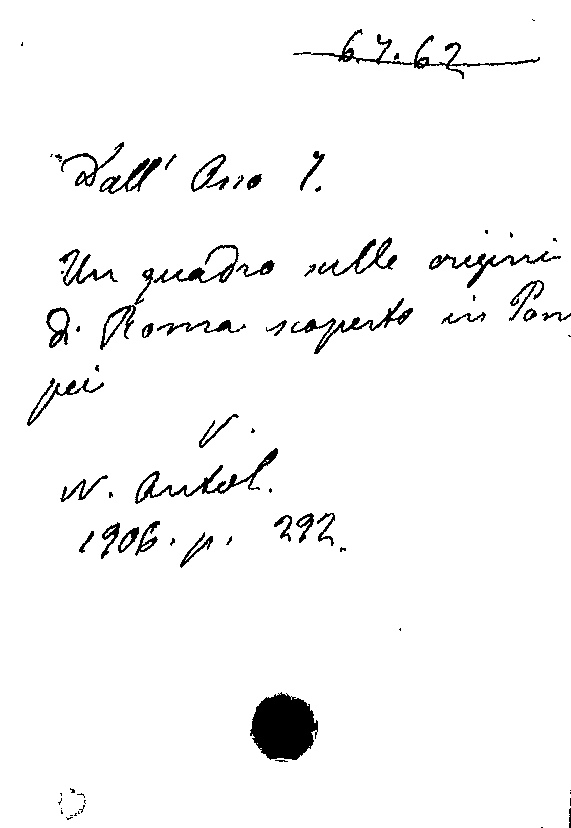 6.7.62
Dall' Osso I.
Un quadro sulle origini
di Roma scoperto in Pom
pei
V.
N. Antol.
1906. p. 292.